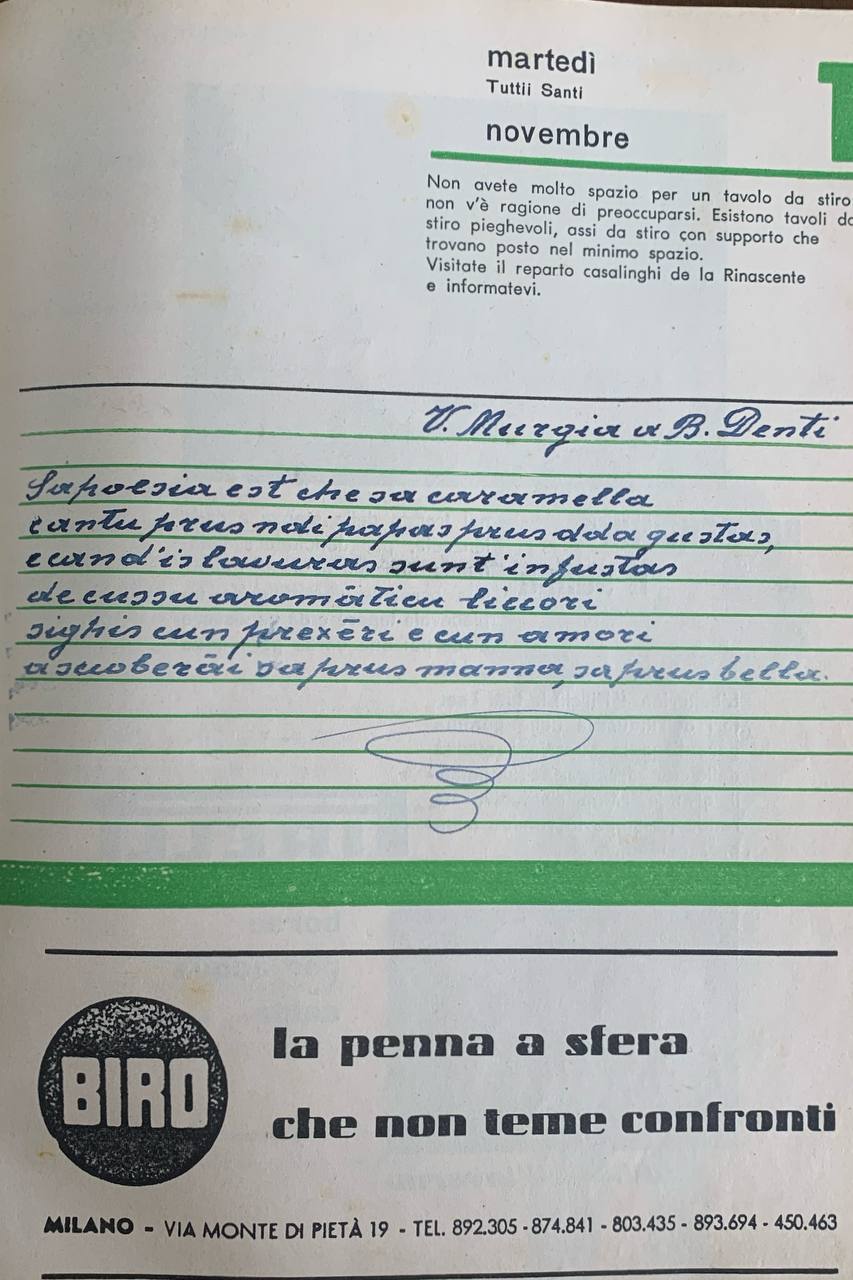 martedì
Tuttii Santi
novembre
1
Non avete molto spazio per un tavolo da stiro
non v'è ragione di preoccuparsi. Esistono tavoli da
stiro pieghevoli, assi da stiro con supporto che
trovano posto nel minimo spazio.
Visitate il reparto casalinghi de la Rinascente
e informatevi.
V. Murgia a B. Denti
Sa poesia est che sa caramella
cantu prus ndi papas prus dda gustas,
e cand'is lavuras sunt'infustas
de cussu aromāticu liccori
sighis cun prexēri e cun amori
a scuoberāi sa prus manna, sa prus bella.
BIRO
la penna a sfera
che non teme confronti
MILANO - VIA MONTE DI PIETÀ 19 - TEL. 892.305 - 874.841 - 803.435 - 893.694 - 450.463